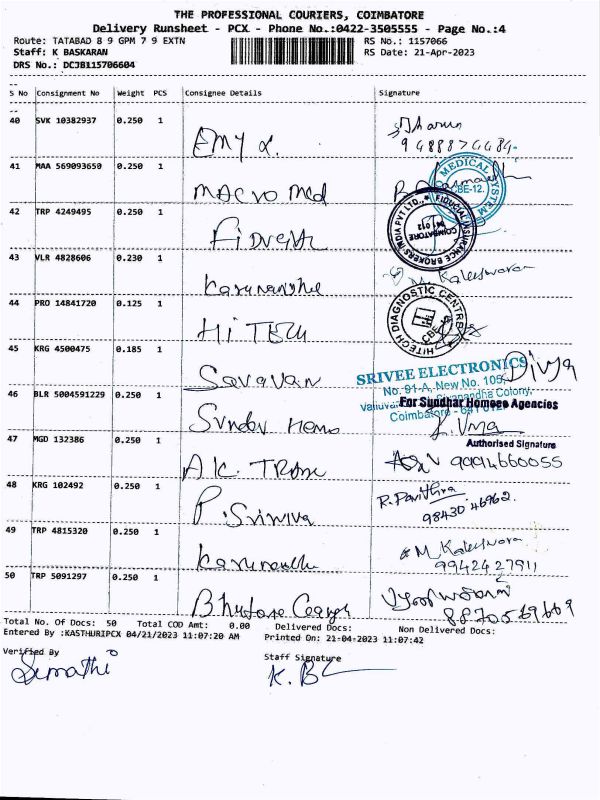 THE PROFESSIONAL COURIERS, COIMBATORE
Delivery Runsheet - PCX - Phone No.:0422-3505555 - Page No.:4
Route: TATABAD 8 9 GPM 7 9 EXTN RS No.: 1157066
Staff: K BASKARAN RS Date: 21-Apr-2023
DRS No.: DCJB115706604
S No Consignment No Weight PCS Consignee Details Signature
40 SVK 10382937 0.250 1
Emy
41 MAA 569093650 0.250 1
Macro med
MEDICAL SYSTEM
CBE-12.
42 TRP 4249495 0.250 1
FIDUCIAL INSURANCE BROKERS INDIA PVT LTD.,
COIMBATORE
641 012
43 VLR 4828606 0.230 1
M. Kaleeswaran
44 PRO 14841720 0.125 1
Hi TECH
HITECH DIAGNOSTIC CENTRE
Hi
CBE-12
45 KRG 4500475 0.185 1
Saravan
Divya
SRIVEE ELECTRONICS
No. 91-A, New No. 105,
Colony,
Coimbatore - 641 012
46 BLR 5004591229 0.250 1
Sunder Homo
For Sundhar Homeo Agencies
Uma
Authorised Signature
47 MGD 132386 0.250 1
A.K. Trade
48 KRG 102492 0.250 1
P. Sriniva
R. Pavithra
98430 46962.
49 TRP 4815320 0.250 1
M Kaleeswara
9942427911
50 TRP 5091297 0.250 1
Total No. Of Docs: 50 Total COD Amt: 0.00 Delivered Docs: Non Delivered Docs:
Entered By :KASTHURIPCX 04/21/2023 11:07:20 AM Printed On: 21-04-2023 11:07:42
Verified By Staff Signature
K. B